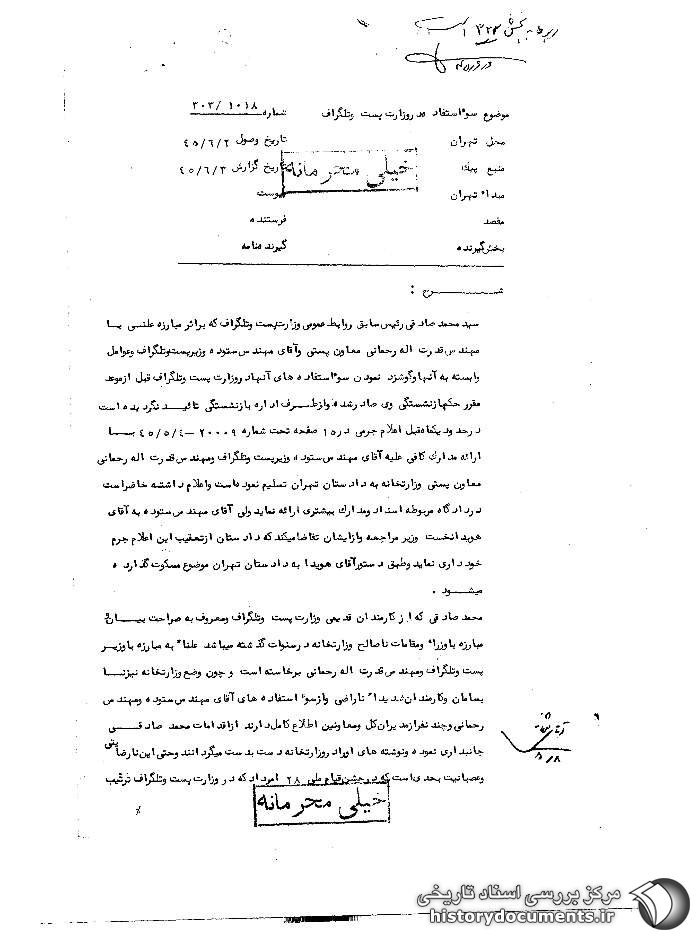 موضوع سوءاستفاده در وزارت پست وتلگراف
شماره ۱۰۱۸ /۳۰۳
محل تهران
تاریخ وصول ۴۵/۶/۲
منبع پیک
تاریخ گزارش ۴۵/۶/۳
خیلی محرمانه
مبداء تهران
پیوست
مقصد
فرستنده
بخش گیرنده
گیرنده نامه
شــــــرح :
سید محمد صادقی رئیس سابق روابط عمومی وزارت پست وتلگراف که براثر مبارزه علنی بـا
مهندس قدرت اله رحمانی معاون پستی وآقای مهندس ستوده وزیر پست وتلگراف وعوامل
وابسته به آنها وگوشزد نمودن سوءاستفاده های آنها در وزارت پست وتلگراف قبل ازموعد
مقرر حکم بازنشستگی وی صادرشده وازطـرف اداره بازنشستگی تائیـد نگردیده است
درحدود یکماه قبل اعلام جرمی در۱۵ صفحه تحت شماره ۲۰۰۰۹-۴۵/۵/۴ بـــا
ارائه مدارک کافی علیه آقای مهندس ستوده وزیرپست وتلگراف ومهندس قدرت اله رحمانی
معاون پستی وزارتخانه به دادستان تهران تسلیم نموده است واعلام داشته حاضراست
دردادگاه مربوطه اسناد ومدارک بیشتری ارائه نماید ولی آقای مهندس ستوده به آقای
هویدا نخست وزیر مراجعه وازایشان تقاضا میکند که دادستان ازتعقیب این اعلام جرم
خودداری نماید وطبق دستورآقای هویدا به دادستان تهران موضوع مسکوت گذارده
میشـــود .
محمد صادقی که ازکارمندان قدیمی وزارت پست وتلگراف ومعروف به صراحت بیـــان و
مبارزه باوزراء ومقامات ناصالح وزارتخانه درسنوات گذشته میباشد علناً به مبارزه باوزیـر
پست وتلگراف ومهندس قدرت اله رحمانی برخاسته است و چون وضع وزارتخانه نیزنـا
بسامان وکارمندان شدیداً ناراضی وازسوءاستفاده های آقای مهندس ستوده ومهندس
رحمانی وچند نفرازمدیران کل ومعاونین اطلاع کامل دارند ازاقدامات محمد صادقـــی
جانبداری نموده ونوشته های اورا در وزارتخانه دست بدست میگردانند وحتی این نارضایتی
وعصبانیت بحدی است که درجشن قیام ملی ۲۸ امرداد که در وزارت پست وتلگراف ترتیب
خیلی محرمانه
۸/۸
مرکز بررسی اسناد تاریخی
historydocuments.ir